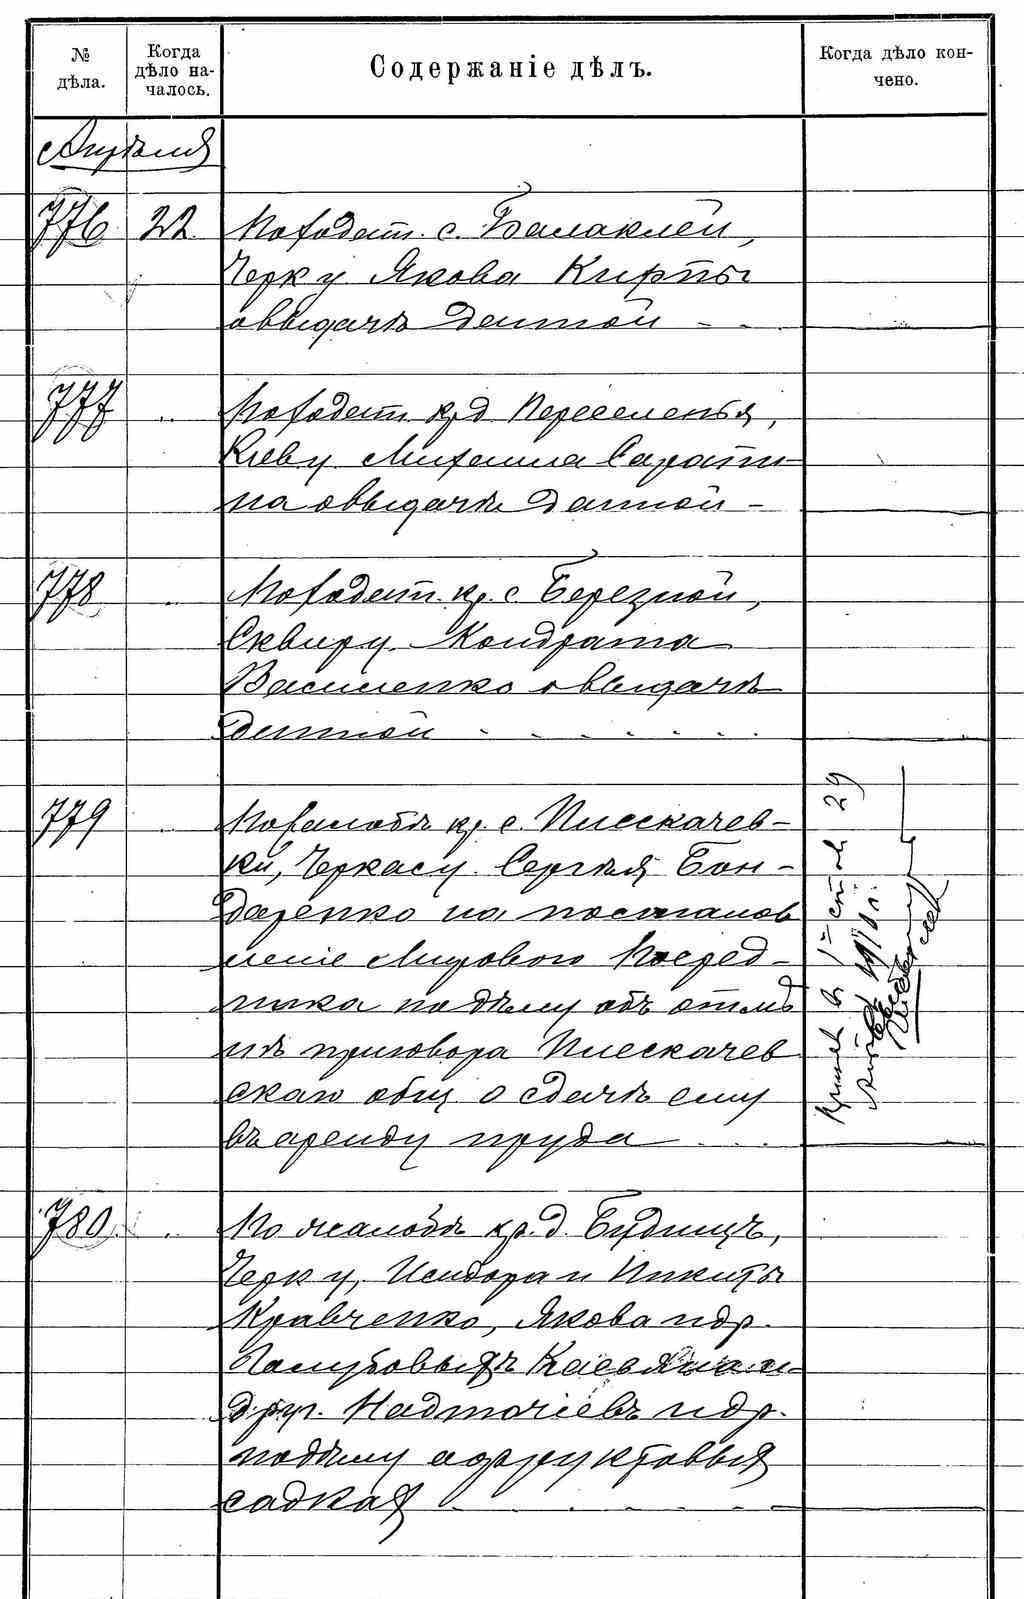 № дѣла.
Когда дѣло на-чалось.
Содержаніе дѣлъ.
Когда дѣло кон-чено.
Апрѣля
776 22 По ходат. с. Балаклеи,
Черк у Якова Кирпы
о выдачѣ данной - -
777 .. По ходат. кр. д. Переселенья,
Киеву Михаила Сарати-
на о выдачѣ данной -
778 .. По ходат. кр. с. Березной,
Сквиру. Кондрата
Василенко о выдачѣ
данной - - - - - -
779 .. По жалобѣ кр. с. Плескачев-
ки, Черкасу. Сергѣя Бон-
даренко на постанов
леніе Мирового Посред-
ника по дѣлу объ отмѣ
нѣ приговора Плескачев
скаго общ о сдачѣ ему
въ аренду пруда - - -
780 .. По жалобѣ кр. д. Будищъ,
Черк у, Исидора и Никиты
Кравченко, Якова и др.
друг. Надточіевъ и др.
по дѣлу о фруктовыхъ
садкахъ - - - - -
въ 1й стол 29